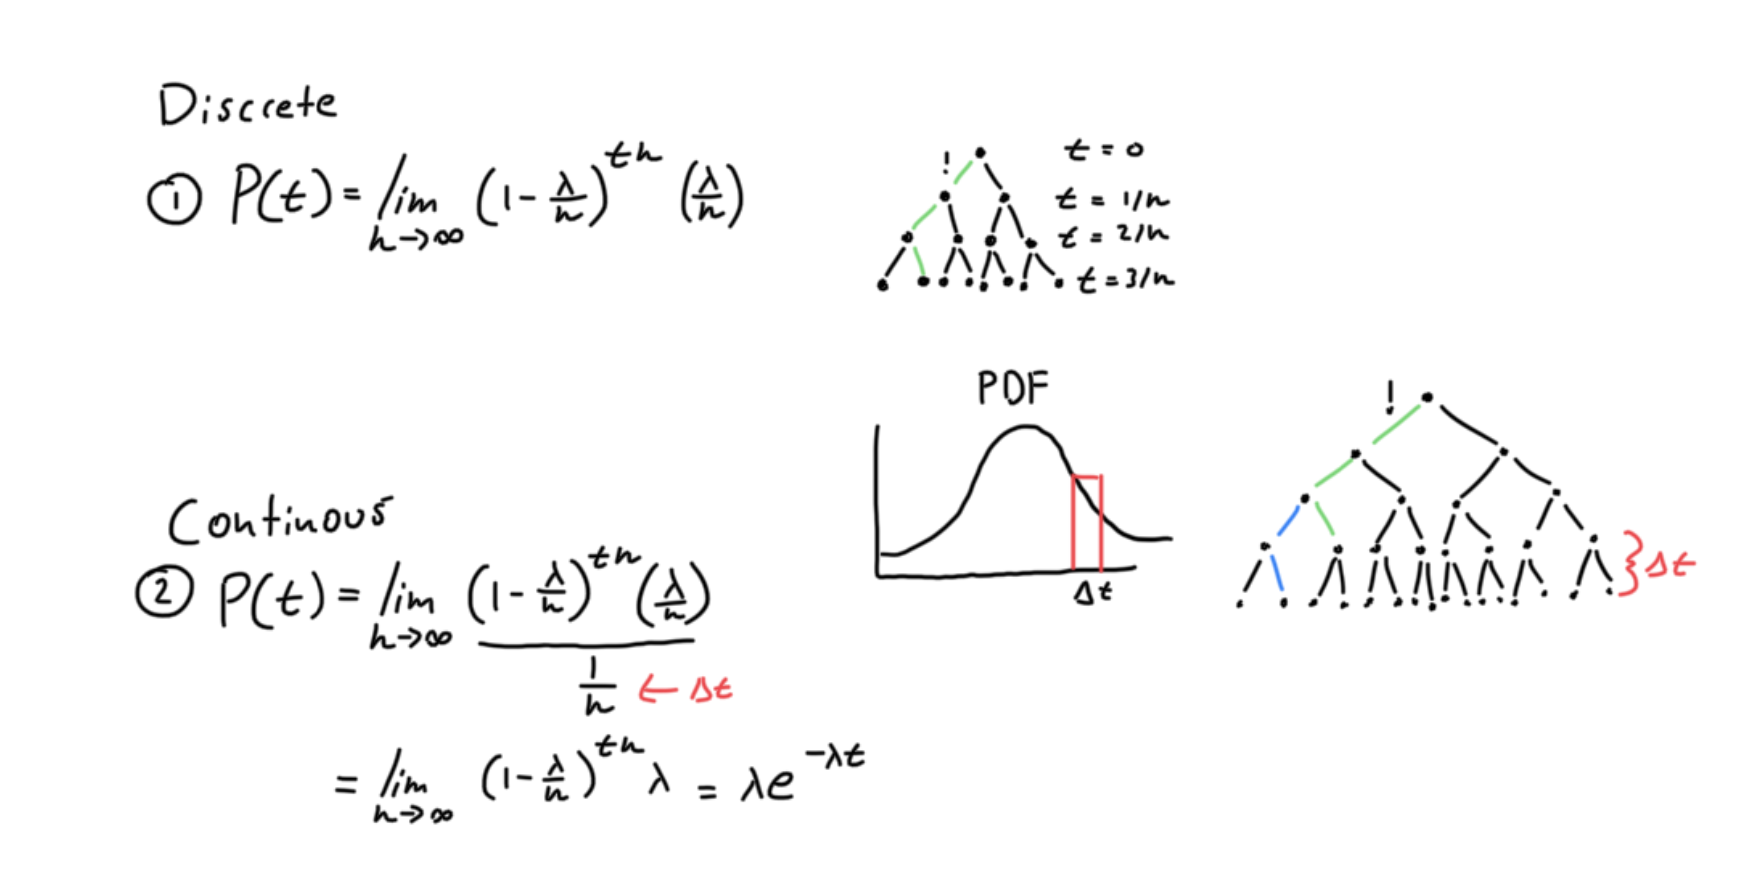 Discrete
① P(t) = lim n→∞ (1 - λ/n)^tn (λ/n)
!
t = 0
t = 1/n
t = 2/n
t = 3/n
PDF
Δt
!
Δt
Continous
② P(t) = lim n→∞ (1 - λ/n)^tn (λ/n)
1/n ← Δt
= lim n→∞ (1 - λ/n)^tn λ = λe^-λt